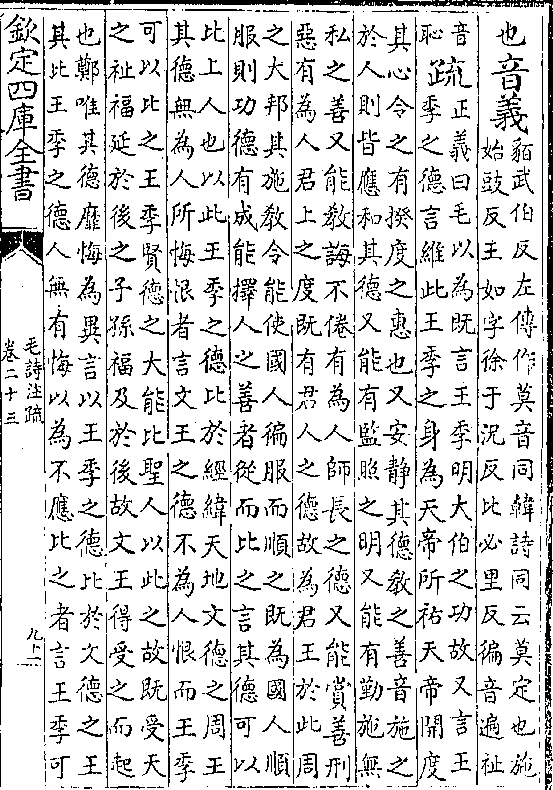 也音義貊武伯反左傳作莫音同韓詩同云莫定也施
始豉反王如字徐于況反比必里反徧音遍祉
音
恥疏正義曰毛以為既言王季明大伯之功故又言王
季之德言維此王季之身為天帝所祐天帝開度
其心令之有揆度之惠也又安靜其德教之善音施之
於人則皆應和其德又能有監照之明又能有勤施無
私之善又能教誨不倦有為人師長之德又能賞善刑
惡有為人君上之度既有君人之德故為君王於此周
之大邦其施教令能使國人徧服而順之既為國人順
服則功德有成能擇人之善者從而比之言其德可以
比上人也以此王季之德比於經緯天地文德之周王
其德無為人所悔恨者言文王之德不為人恨而王季
可以比之王季賢德之大能比聖人以此之故既受天
之祉福延於後之子孫福及於後故文王得受之而起
也鄭唯其德靡悔為異言以王季之德比於文德之王
其比王季之德人無有悔以為不應比之者言王季可
欽定四庫全書
毛詩注疏
卷二十三
九上